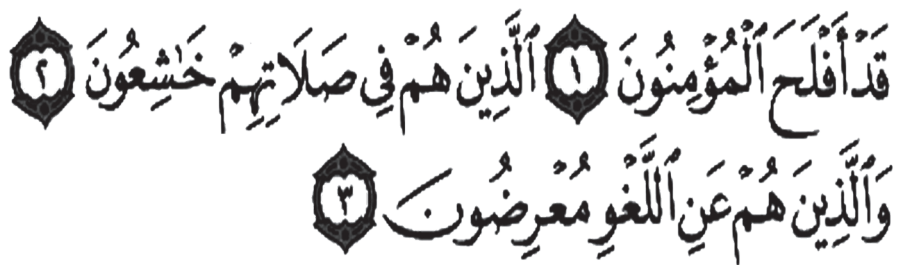 قَدْ أَفْلَحَ ٱلْمُؤْمِنُونَ ١ ٱلَّذِينَ هُمْ فِي صَلَاتِهِمْ خَٰشِعُونَ ٢
وَٱلَّذِينَ هُمْ عَنِ ٱللَّغْوِ مُعْرِضُونَ ٣